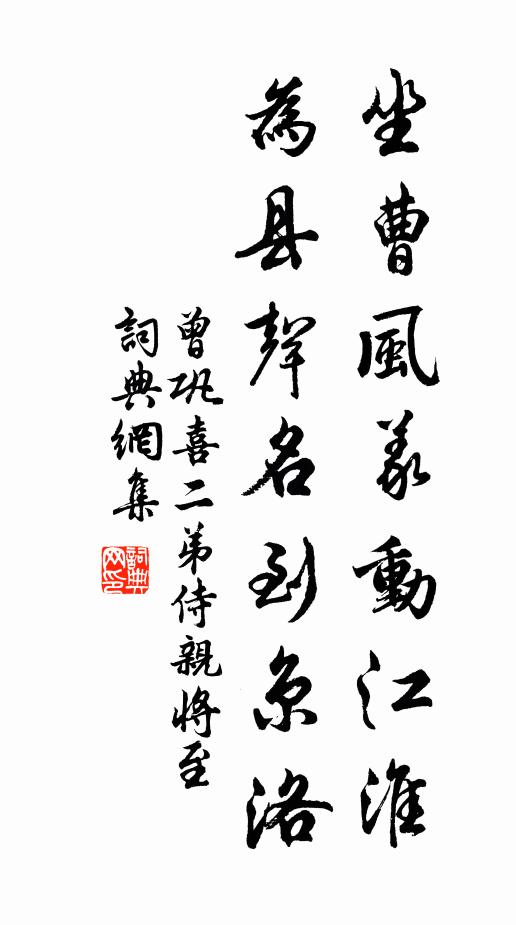 坐曹風義動江淮
為县聲名到京洛
曾巩喜二弟侍親将至
詞典網集
詞典网印